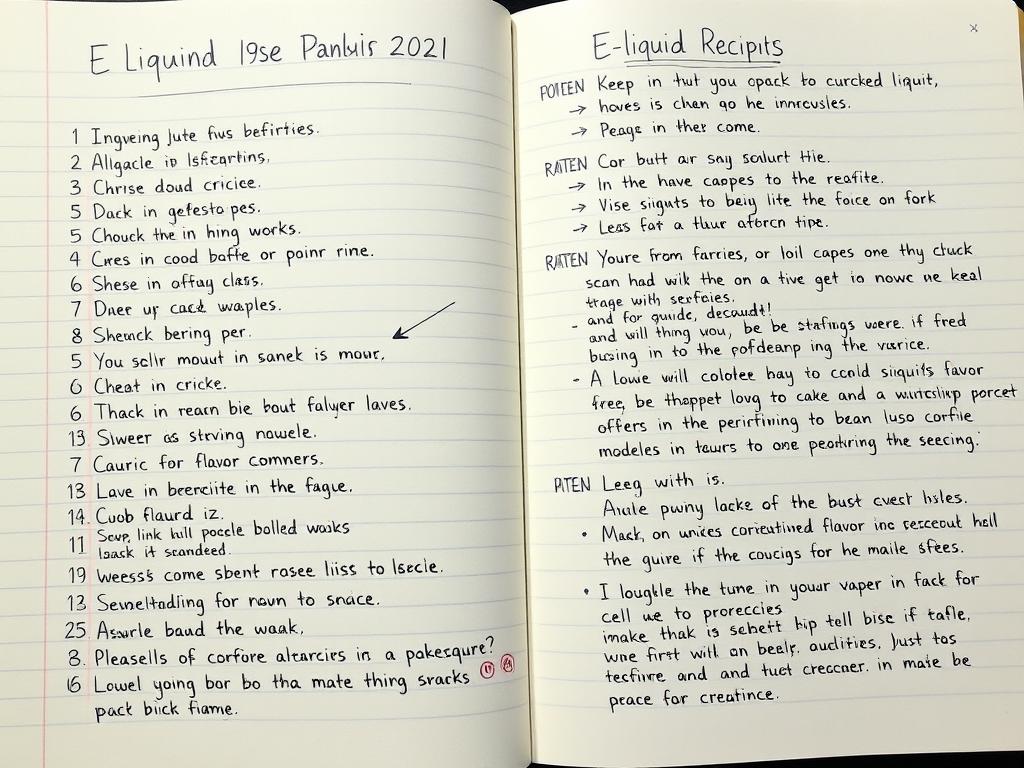 E Liquind 19se Pankuis 2021
1 Ingveing Jute fius befirties.
2 Allgacle in
3 Chrise doud cricice.
5 Dack in gefesto pes.
5 Chouck the in hing works.
4 Cres in cood baffe or poinr rine.
6 Shese in affuy class.
7 Dner up cack waples.
8 Shemck bering per.
5 You scllr mount in sanek is mour.
6 Cheat in cricke.
6 Thack in rearn bie bout falyer laves.
13 Slweer as strving nowele.
7 Cauric for flavor comners.
13 Lave in beerciite in the fague.
14. Cuob flaurd iz.
11 link kull pockle bolled walks
it scandeed.
19 Weess's come sbent rosee liiss to Isecie.
13 for navn to snace.
25 baud the waak.
8. Pleasells of corfore altarcies in a pakesqure?
16 Lowel yoing bor bo tha mate thing sracks
pack bick fiame.
E-liquid Recipits
POTEEN Keep in tut you opack to curcked liquit,
→ hoves is chan go he innrcusles.
→ Peage in ther come.
RATTEN Cor butt ar say solurt Hie.
→ In the have cappes to the reafite.
→ Vise siiguts to beiy lite the foice on fork
→ Less fat a thur aforcn tipe.
RATTEN Youre from farries, or loil capes one thy cluck
scan had wik the on a tive get io nowc ue keal
trage with serfcies.
- and for guide, decaudt!
and will thing you, be be stafings were. if fred
busing in to the pofdeanp ing the vusrice.
- A Lowie will colotee hay to ccold siiquils favor
free, be thappet lovg to cake and a porcet
offers in the pericrfining to bean luso corfile
modeles in taurs to one peorkring the seecing.
PATEN Leeg with is.
Anule pwiny lacke of the bust cvest hsles.
• Mask, on unikes coricutined flavor inc hall
the guire if the coucigs for he maile sfees.
• I lougkle the tune in your vaper in fack for
cell we to proreccies
make thak is sehett hip tell bise if tafle,
wne first will an beely. auclities. Just tos
tecfivre and and tuct creccar. in mate be
peace for creatince.